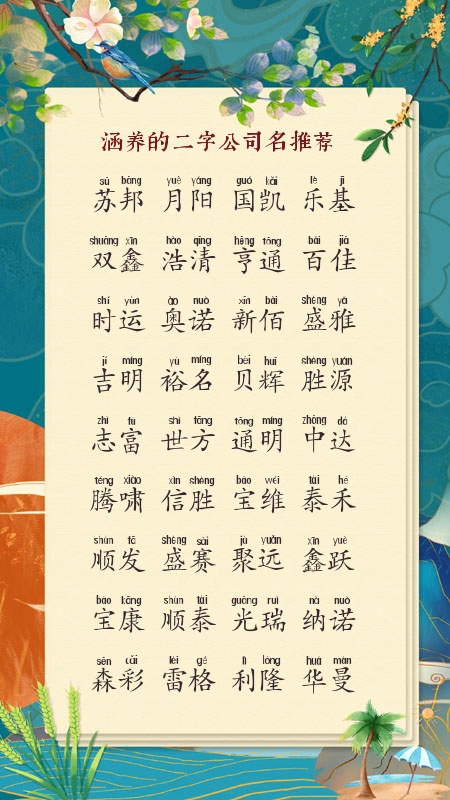 涵养的二字公司名推荐
sū bāng yuè yáng guó kǎi lè jī
苏邦 月阳 国凯 乐基
shuāng xīn hào qīng hēng tōng bǎi jiā
双鑫 浩清 亨通 百佳
shí yùn ào nuò xīn bǎi shèng yǎ
时运 奥诺 新佰 盛雅
jí míng yù míng bèi huī shèng yuán
吉明 裕名 贝辉 胜源
zhì fù shì fāng tōng míng zhōng dá
志富 世方 通明 中达
téng xiào xìn shèng bǎo wéi tài hé
腾啸 信胜 宝维 泰禾
shùn fā shèng sài jù yuǎn xīn yuè
顺发 盛赛 聚远 鑫跃
bǎo kāng shùn tài guāng ruì nà nuò
宝康 顺泰 光瑞 纳诺
sēn cǎi léi gé lì lóng huá màn
森彩 雷格 利隆 华曼